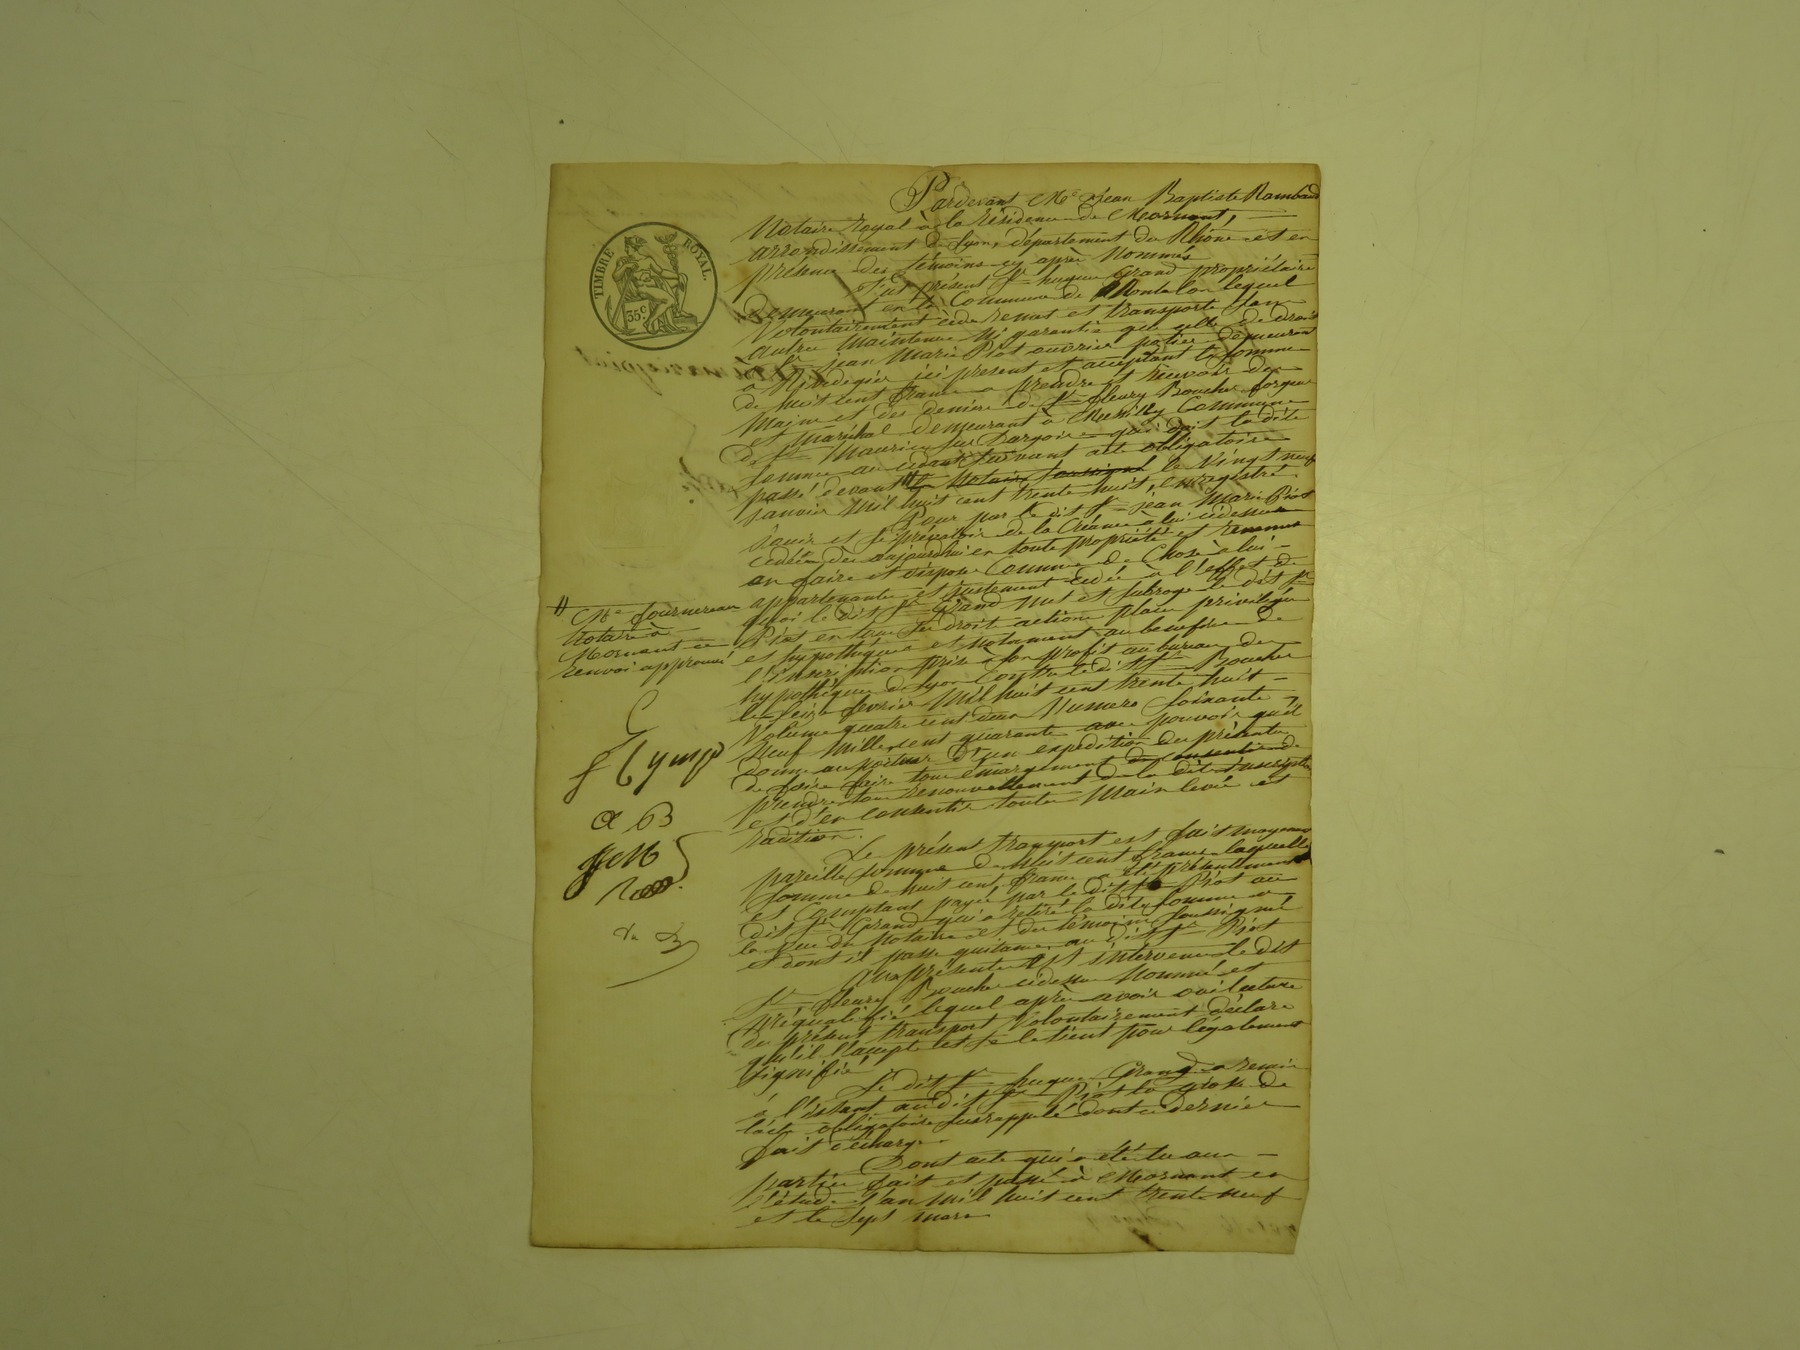 Pardevant Me Jean Baptiste Rambaud
Notaire Royal à la résidence de Mornant,
arrondissement de Lyon, département du Rhône et en
présence des témoins cy après Nommés
fut présent Sr hugue Grand propriétaire
Demeurant en la Commune de lequel
Volontairement cède remet et transporte sans
autre Maintenue Ni garantie que celle de droit
à Sr jean Marie Piot ouvrier potier demeurant
à Rivedegier ici présent et acceptant la somme
de huit cent francs a prendre et recevoir des
Mains et des deniers de Sr fleury Boucher forgeur
et Maréchal demeurant à Commune
de St Maurice sur Dargoire qui doit la dite
somme au cédant suivant acte obligatoire
passé devant # le Notaire soussigné le Vingt neuf
janvier Mil huit cent trente huit, enregistré
Pour par le dit Sr jean Marie Piot
jouir et se prévaloir de la Créance à lui cidessus
cédée dès aujourdhui en toute propriété et revenus
en faire et dispose Comme de Chose à lui
appartenante et justement cédée à l'effet de
quoi le dit Sr Grand Met et subroge le dit Sr
Piot en tous ses droit actions places privilèges
et hypothèques et Notament au bénéfice de
l'inscription prise à son profit au bureau des
hypothèques de Lyon Contre le dit Sr Boucher
le Seize fevrier Mil huit cent trente huit
Volume quatre cent deux Numéro soixante
Neuf Mille cent quarante avec pouvoir qu'il
donne au porteur d'une expédition des présentes
de faire faire tous émargement de consentir de
prendre tous renouvellement de la dite inscription
et d'en consentir toutes Main levée et
radiation.
Le présent transport est fait moyennant
pareille somme de huit cent francs laquelle
somme de huit cent francs a été présentement
et Comptant payée par le dit Sr Piot au
dit Sr Grand qui a retiré la dite somme à
la vue du Notaire et des témoins soussignés
et dont il passe quitance au dit Sr Piot
Aux présentes est intervenu le dit
Sr fleury Boucher cidessus Nommé et
préqualifié lequel après avoir oui lecture
du présent transport Volontairement déclare
qu'il l'accepte et se le tient pour légalement
signifié
Le dit Sr hugue Grand a remis
à l'instant au dit Sr Piot la grosse de
l'acte obligatoire susrappelé dont ce dernier
fait décharge
Dont acte qui a été lu aux
parties fait et passé à Mornant en
l'étude l'an Mil huit cent trente neuf
et le sept mars
TIMBRE ROYAL.
35c
# Me fournereau
Notaire à
Mornant ce
renvoi approuvé